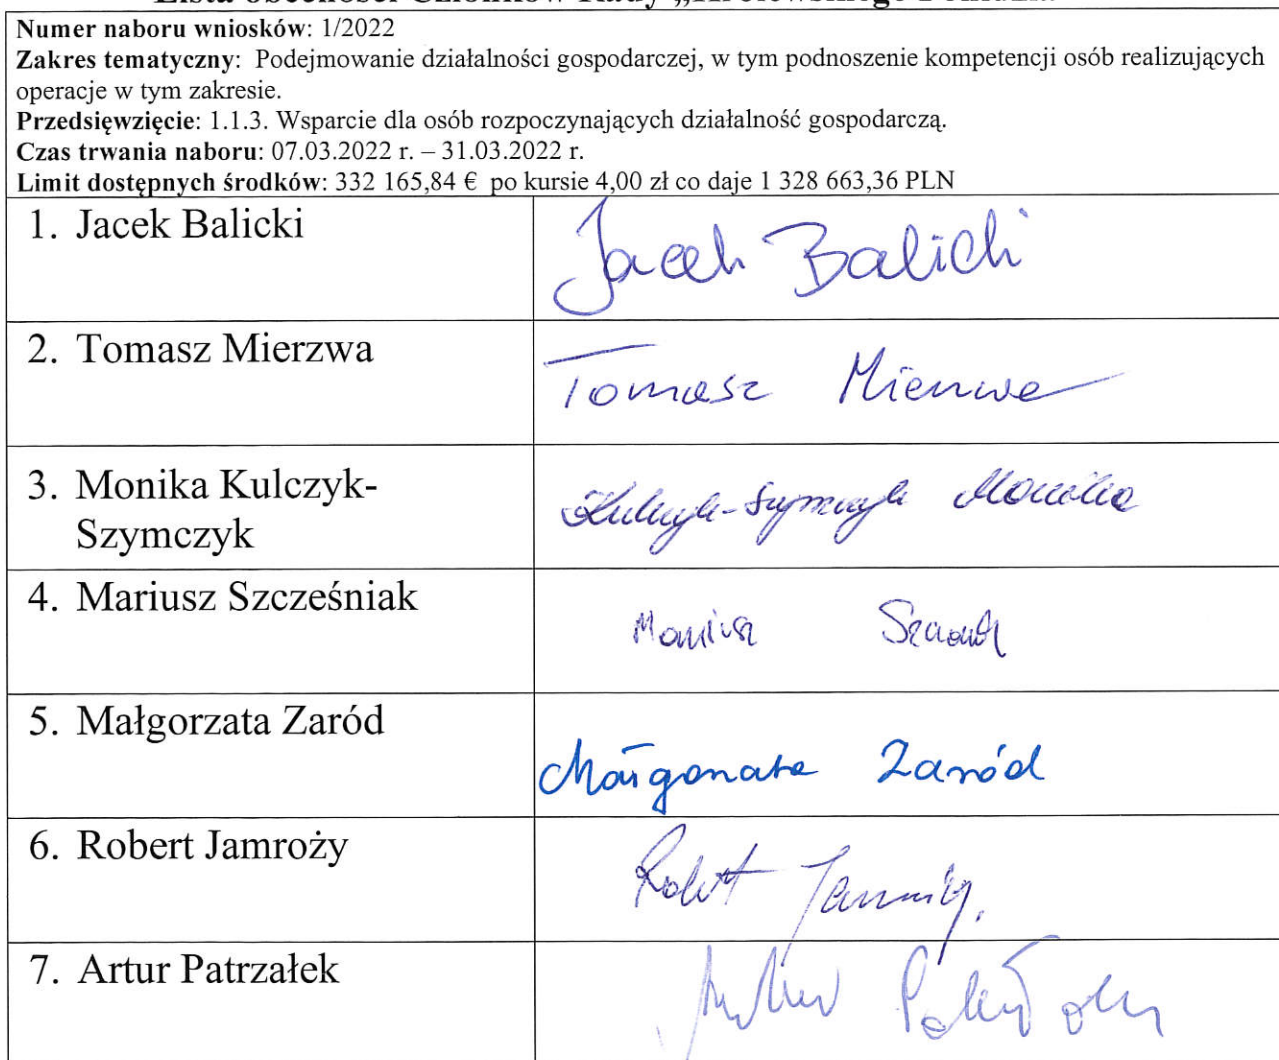 Lista obecności Członków Rady „Królewskiego Ponidzia"
Numer naboru wniosków: 1/2022
Zakres tematyczny: Podejmowanie działalności gospodarczej, w tym podnoszenie kompetencji osób realizujących
operacje w tym zakresie.
Przedsięwzięcie: 1.1.3. Wsparcie dla osób rozpoczynających działalność gospodarczą.
Czas trwania naboru: 07.03.2022 r. – 31.03.2022 r.
Limit dostępnych środków: 332 165,84 € po kursie 4,00 zł co daje 1 328 663,36 PLN
1. Jacek Balicki
Jacek Balicki
2. Tomasz Mierzwa
Tomasz Mierzwa
3. Monika Kulczyk-
Szymczyk
Kulczyk-Szymczyk Monika
4. Mariusz Szcześniak
Mariusz
5. Małgorzata Zaród
Małgorzata Zaród
6. Robert Jamroży
Robert Jamroży
7. Artur Patrzałek
Artur Patrzałek